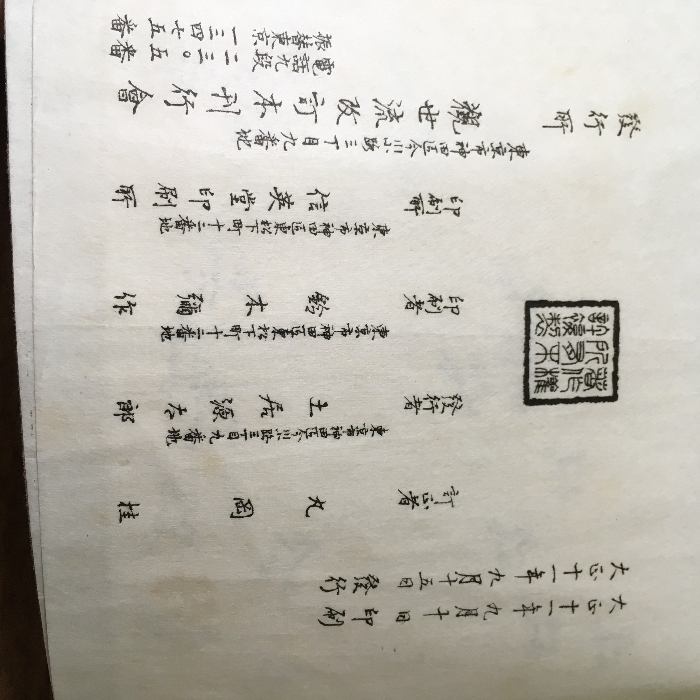 大正十一年九月十日印刷
大正十一年九月十五日發行
訂正者 丸岡桂
東京市神田區今川小路三丁目九番地
發行者 土居源太郎
東京市神田區東松下町十二番地
印刷者 鈴木彌作
東京市神田區東松下町十二番地
印刷所 信英堂印刷所
東京市神田區今川小路三丁目九番地
發行所 觀世流改訂本刊行會
電話九段二三〇五番
振替東京一三四七五番